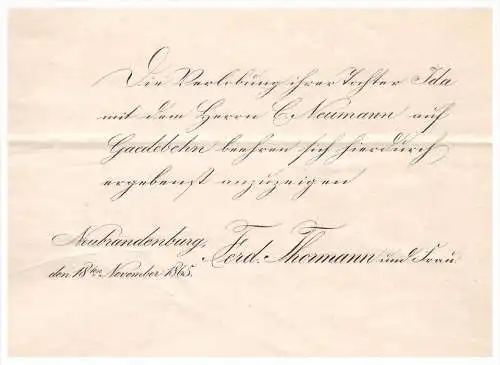 Die Verlobung ihrer Tochter Ida
mit dem Herrn C. Neumann auf
Gaedebehn beehren sich hierdurch
ergebenst anzuzeigen
Neubrandenburg, Ferd. Thormann und Frau
den 18ten November 1865.